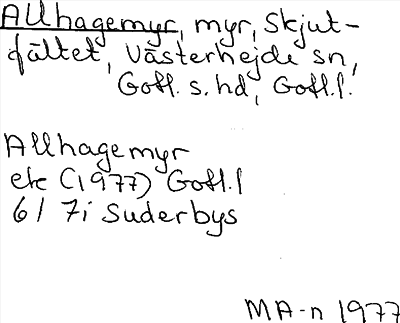 Allhagemyr, myr, Skjut-
fältet, Västerhejde sn,
Gotl. s. hd, Gotl. l.
Allhagemyr
ek (1977) Gotl. l
6I 7i Suderbys
MA-n 1977